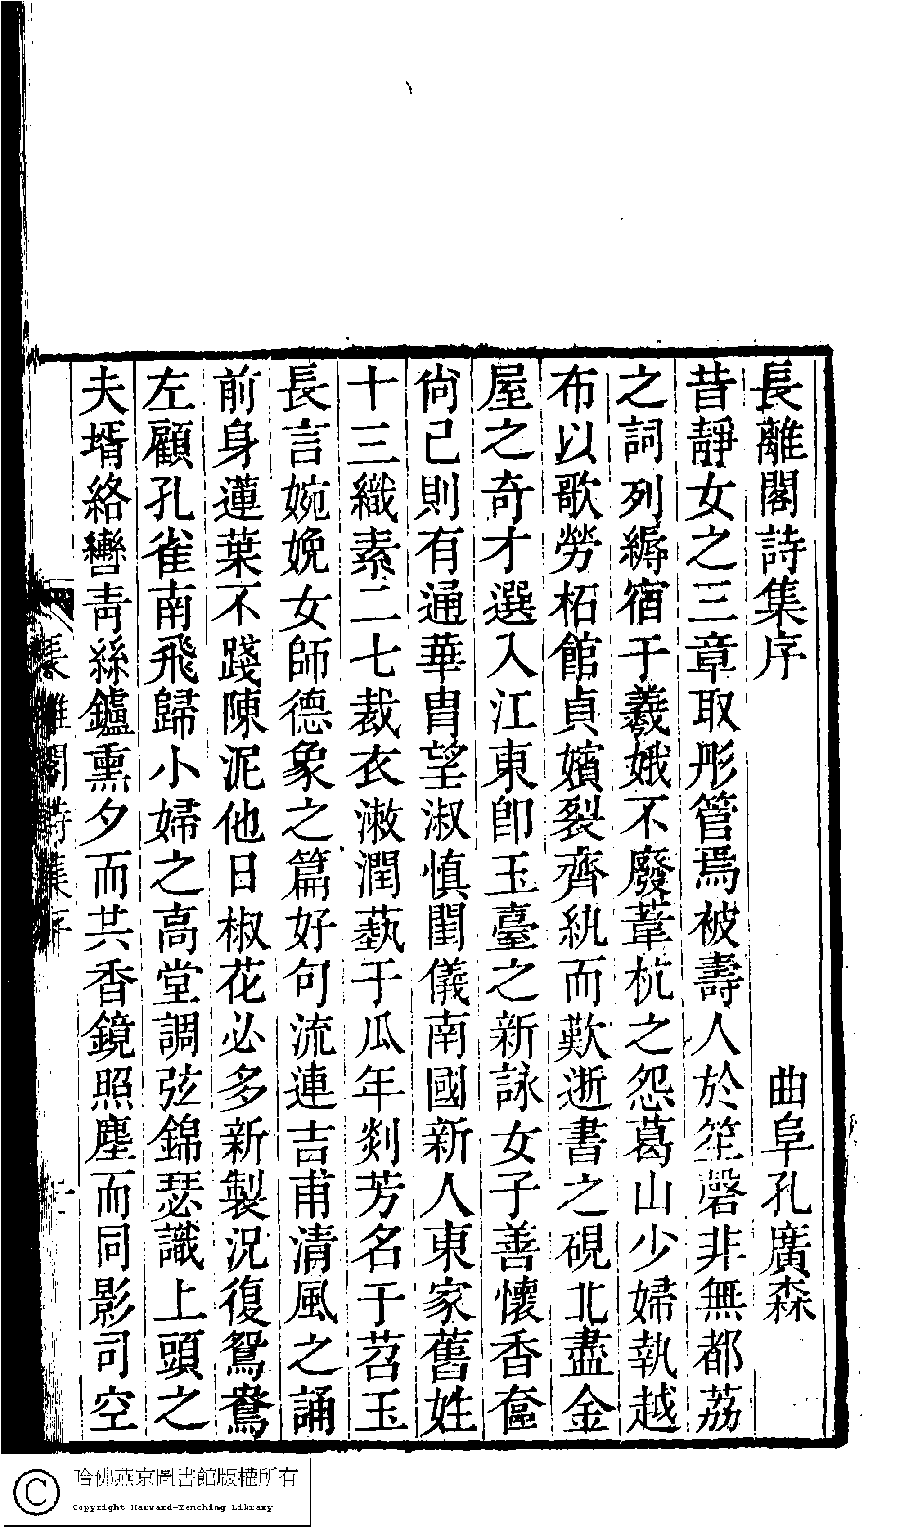 長離閣詩集序
曲阜孔廣森
昔靜女之三章取彤管焉被壽人於笙磬非無都荔
之詞列縟宿于羲娥不廢葦杭之怨葛山少婦執越
布以歌勞柘館貞嬪裂齊紈而歎逝書之硯北盡金
屋之奇才選入江東卽玉臺之新詠女子善懷香奩
尙已則有通華胄望淑慎閨儀南國新人東家舊姓
十三織素二七裁衣漱潤藝于瓜年剡芳名于苕玉
長言婉娩女師德象之篇好句流連吉甫清風之誦
前身蓮葉不踐陳泥他日椒花必多新製況復鴛鴦
左顧孔雀南飛歸小婦之高堂調弦錦瑟識上頭之
夫壻絡轡青絲鑪熏夕而共香鏡照塵而同影司空
長離閣詩集序
哈佛燕京圖書館版權所有
Copyright Harvard-Yenching Library